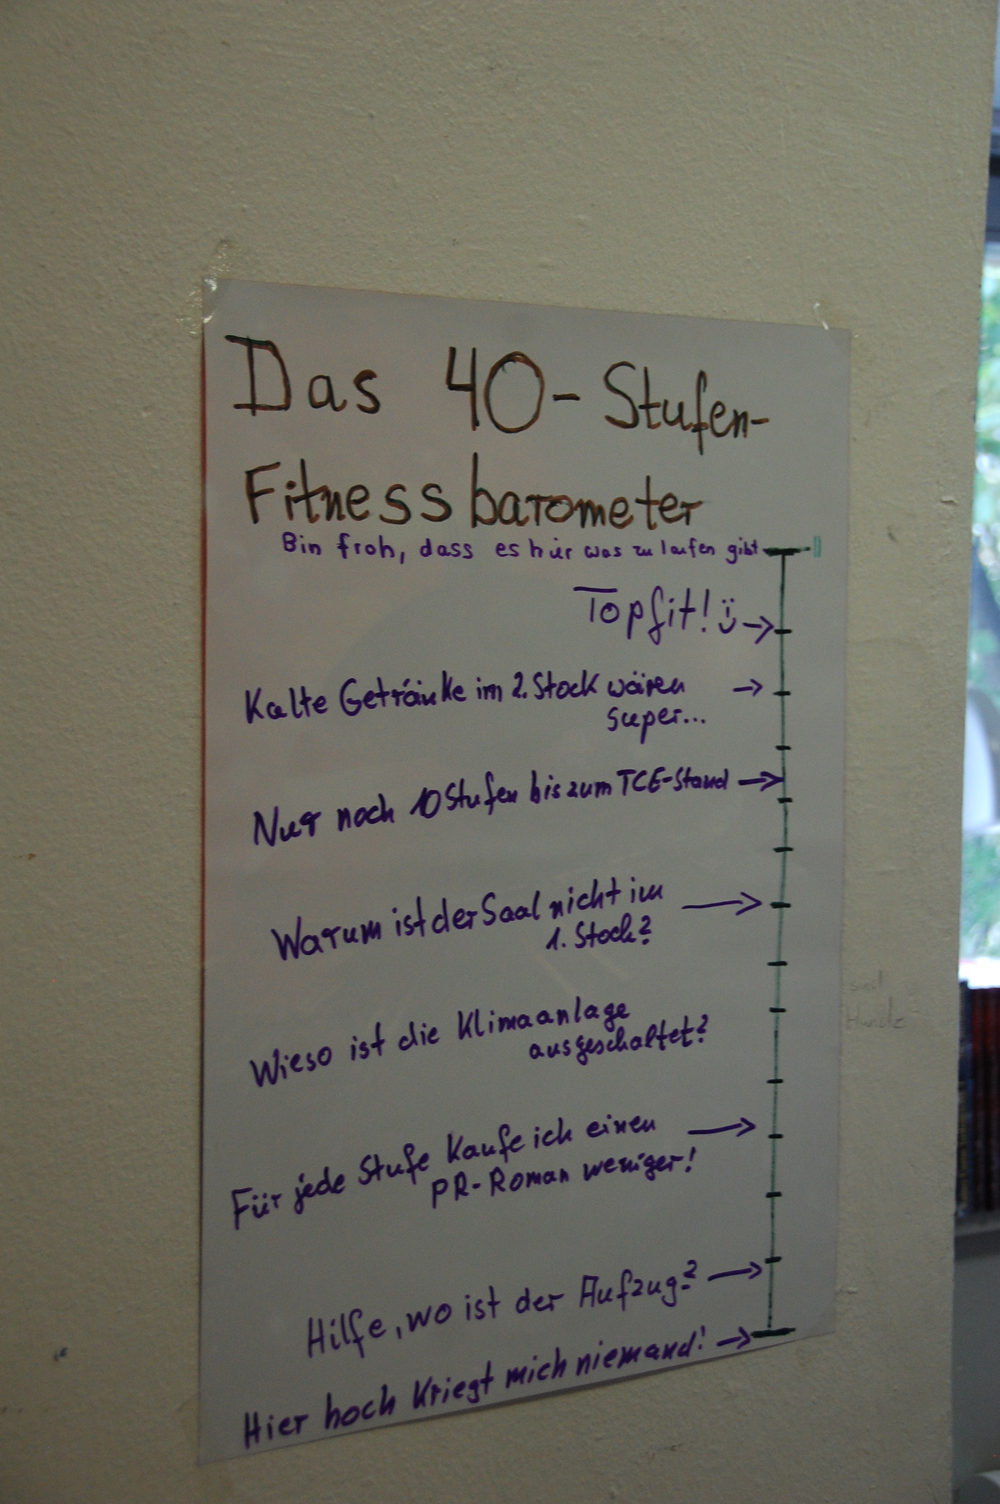 Das 40-Stufen-
Fitnessbarometer
Bin froh, dass es hier was zu laufen gibt
Topfit! :)
Kalte Getränke im 2. Stock wären
super...
Nur noch 10 Stufen bis zum TCE-Stand
Warum ist der Saal nicht im
1. Stock?
Wieso ist die Klimaanlage
ausgeschaltet?
Für jede Stufe kaufe ich einen
PR-Roman weniger!
Hilfe, wo ist der Aufzug?
Hier hoch kriegt mich niemand!